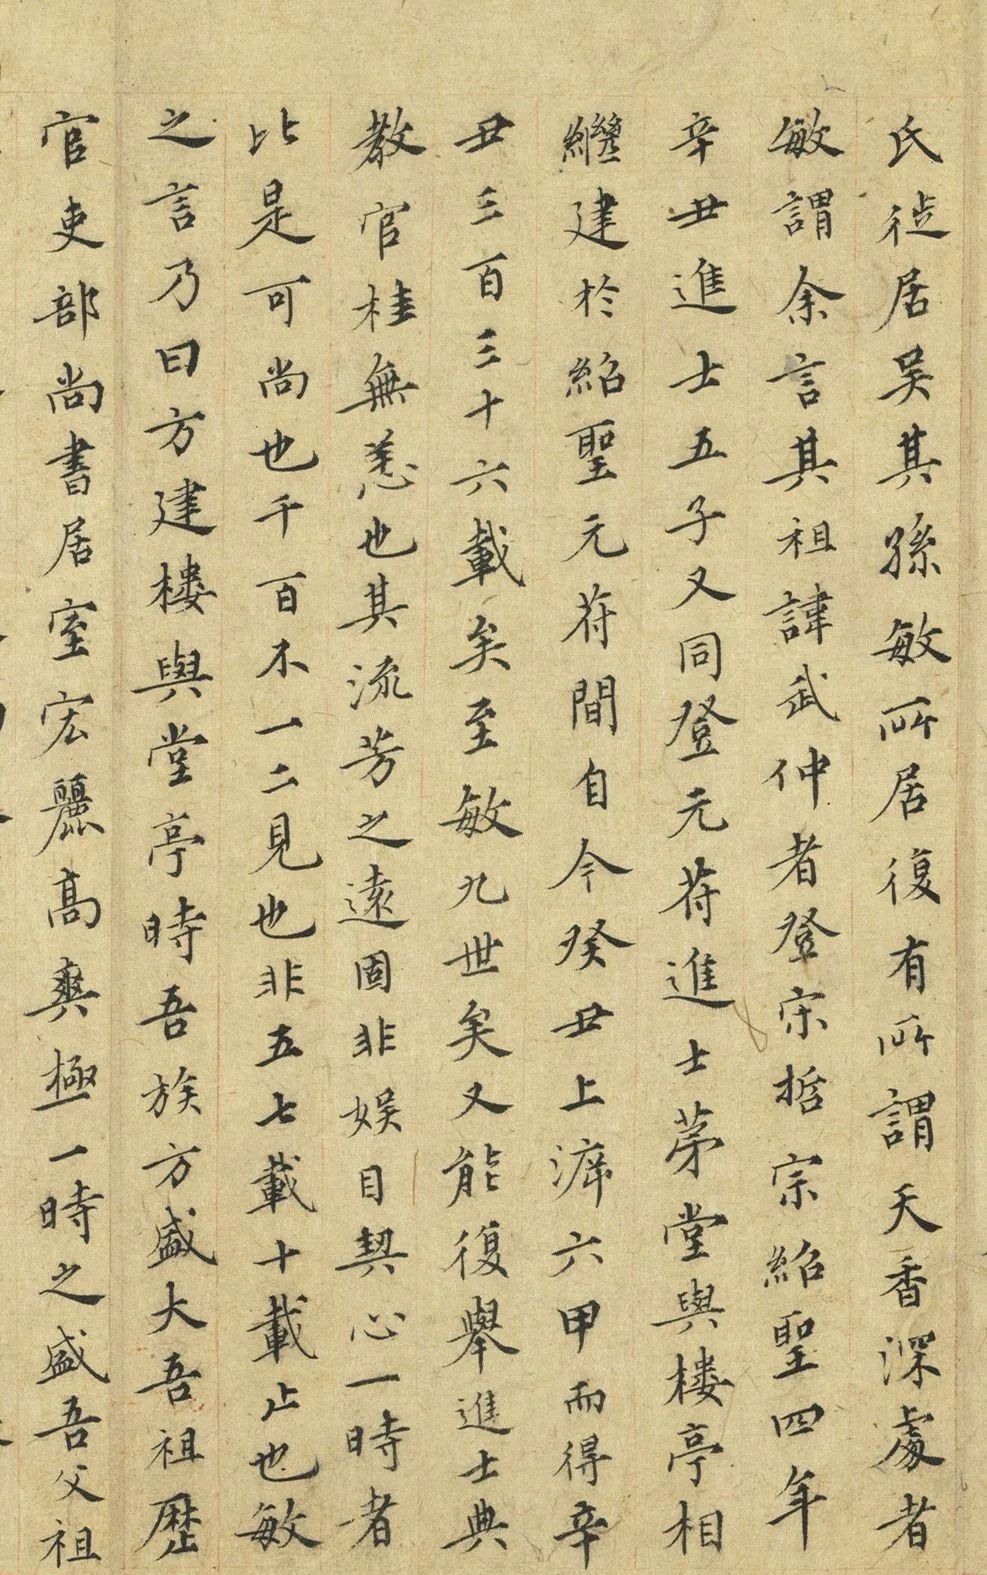 氏徙居吴其孫敏所居復有所謂天香深處者
敏謂余言其祖諱武仲者登宋哲宗紹聖四年
辛丑進士五子又同登元苻進士茅堂與樓亭相
繼建於紹聖元苻間自今癸丑上泝六甲而得辛
丑三百三十六載矣至敏九世矣又能復舉進士典
教官桂無恙也其流芳之遠固非娯目契心一時者
比是可尚也千百不一二見也非五七載十載止也敏
之言乃曰方建樓與堂亭時吾族方盛大吾祖歴
官吏部尚書居室宏麗高爽極一時之盛吾父祖